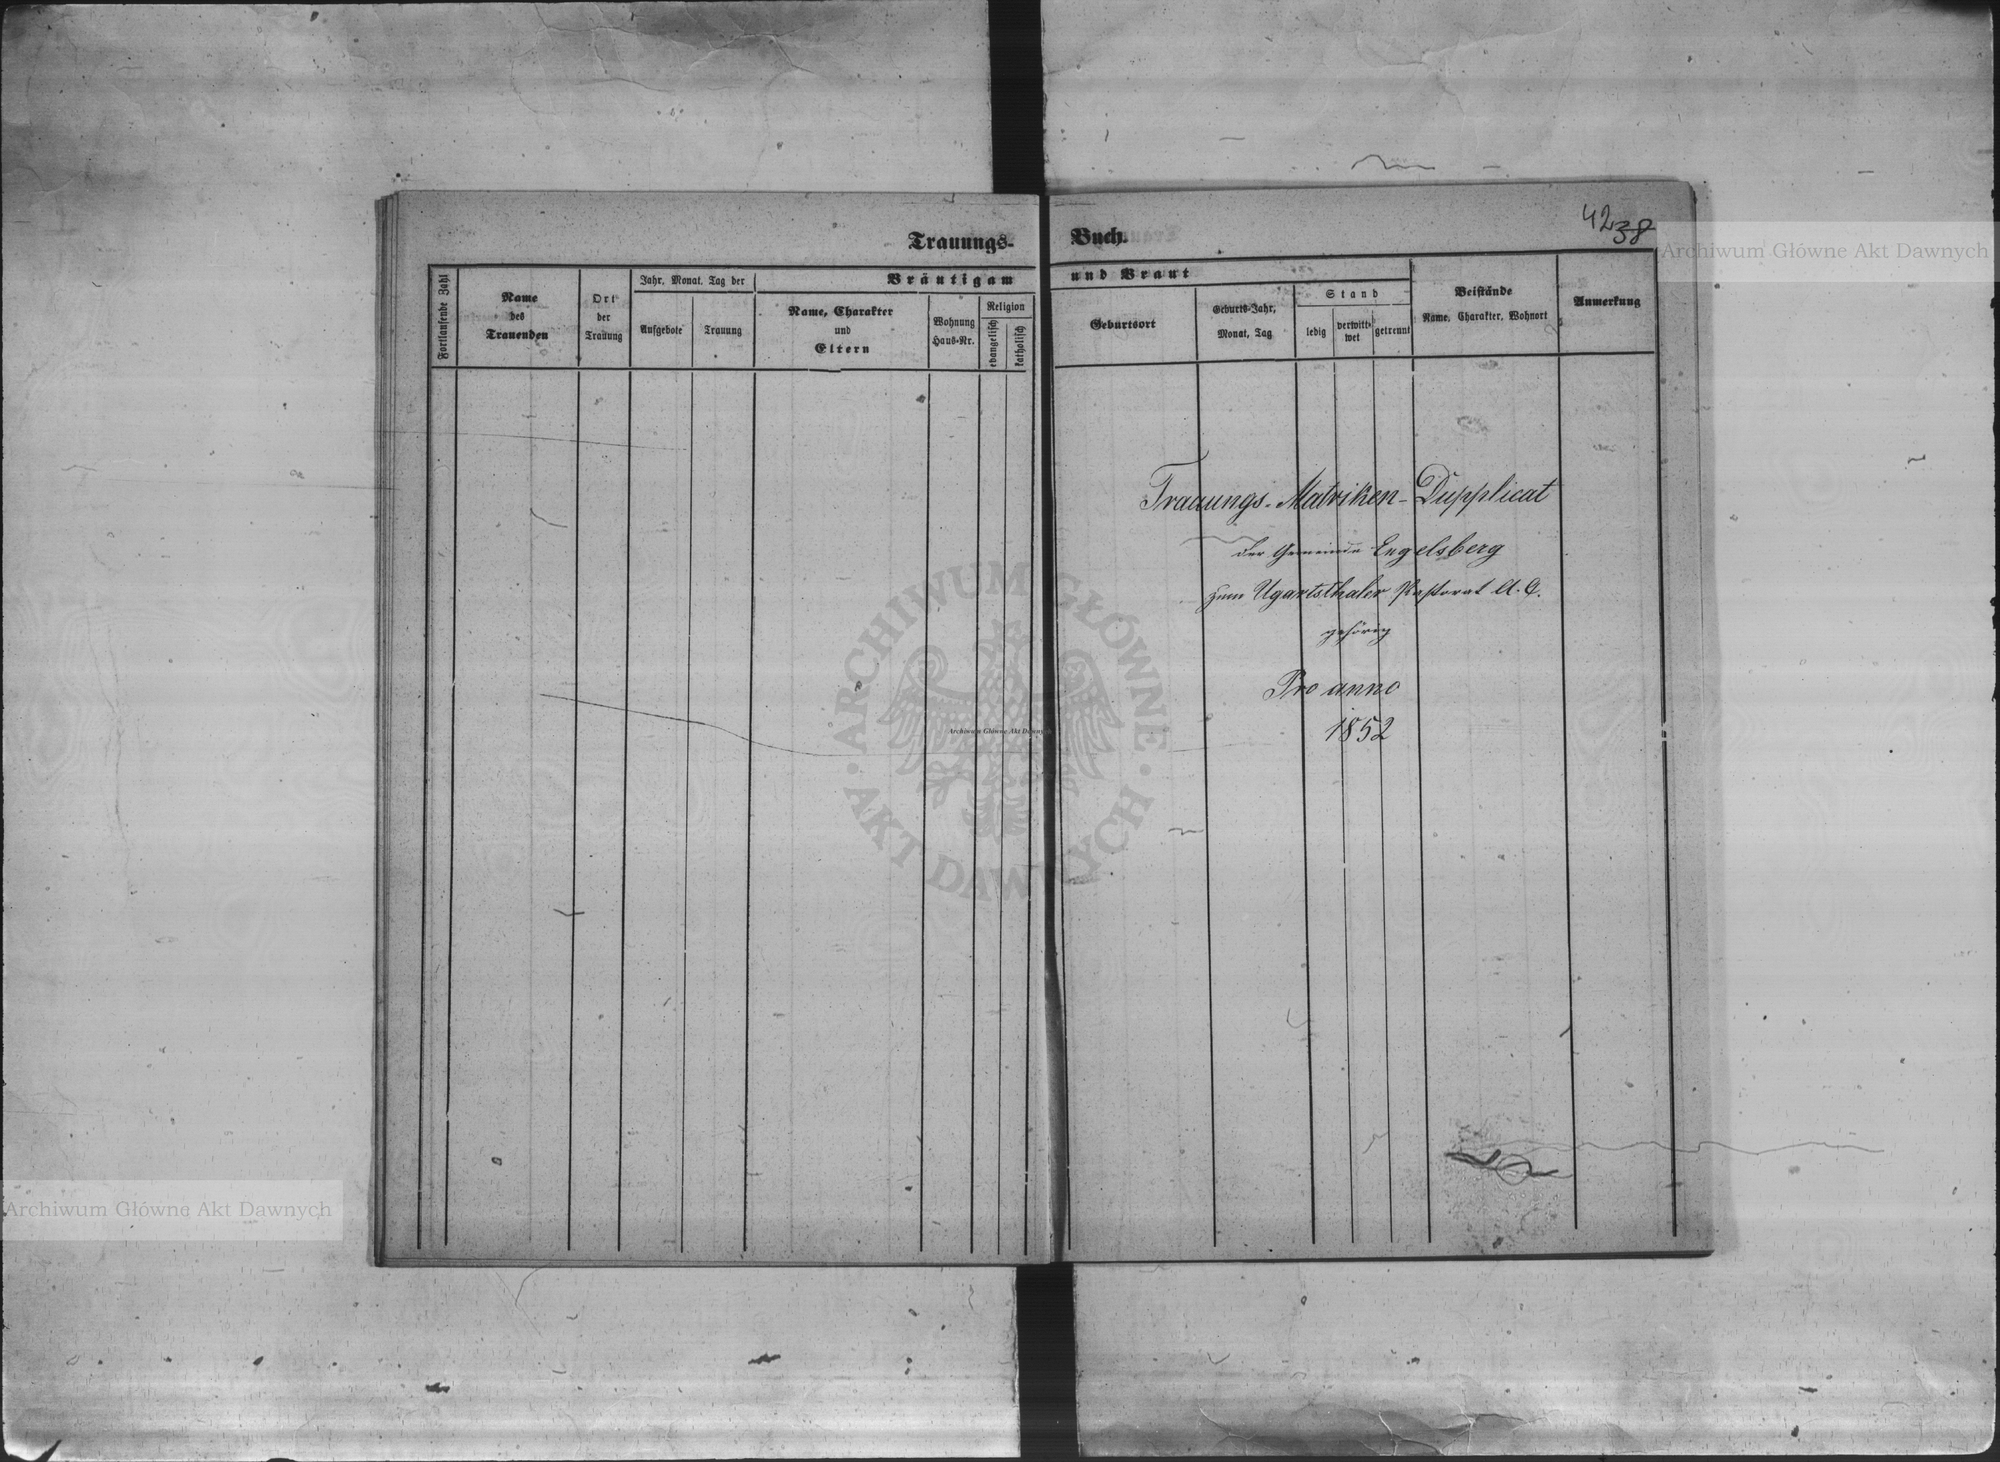 Trauungs-
Fortlaufende Zahl
Name
des
Trauenden
Ort
der
Trauung
Jahr, Monat, Tag der
Aufgebote
Trauung
Bräutigam
Name, Charakter
und
Eltern
Wohnung
Haus-Nr.
Religion
evangelisch
katholisch
Buch.
42 38
und Braut
Geburtsort
Geburts-Jahr,
Monat, Tag
Stand
ledig
verwitt-
wet
getrennt
Beistände
Name, Charakter, Wohnort
Anmerkung
Trauungs-Matriken-Dupplicat
der Gemeinde Engelsberg
zum Ugartsthaler Pastorat A. C.
gehörig
Pro anno
1852
Archiwum Główne Akt Dawnych
ARCHIWUM GŁÓWNE
AKT DAWNYCH
Archiwum Główne Akt Dawnych
Archiwum Główne Akt Dawnych